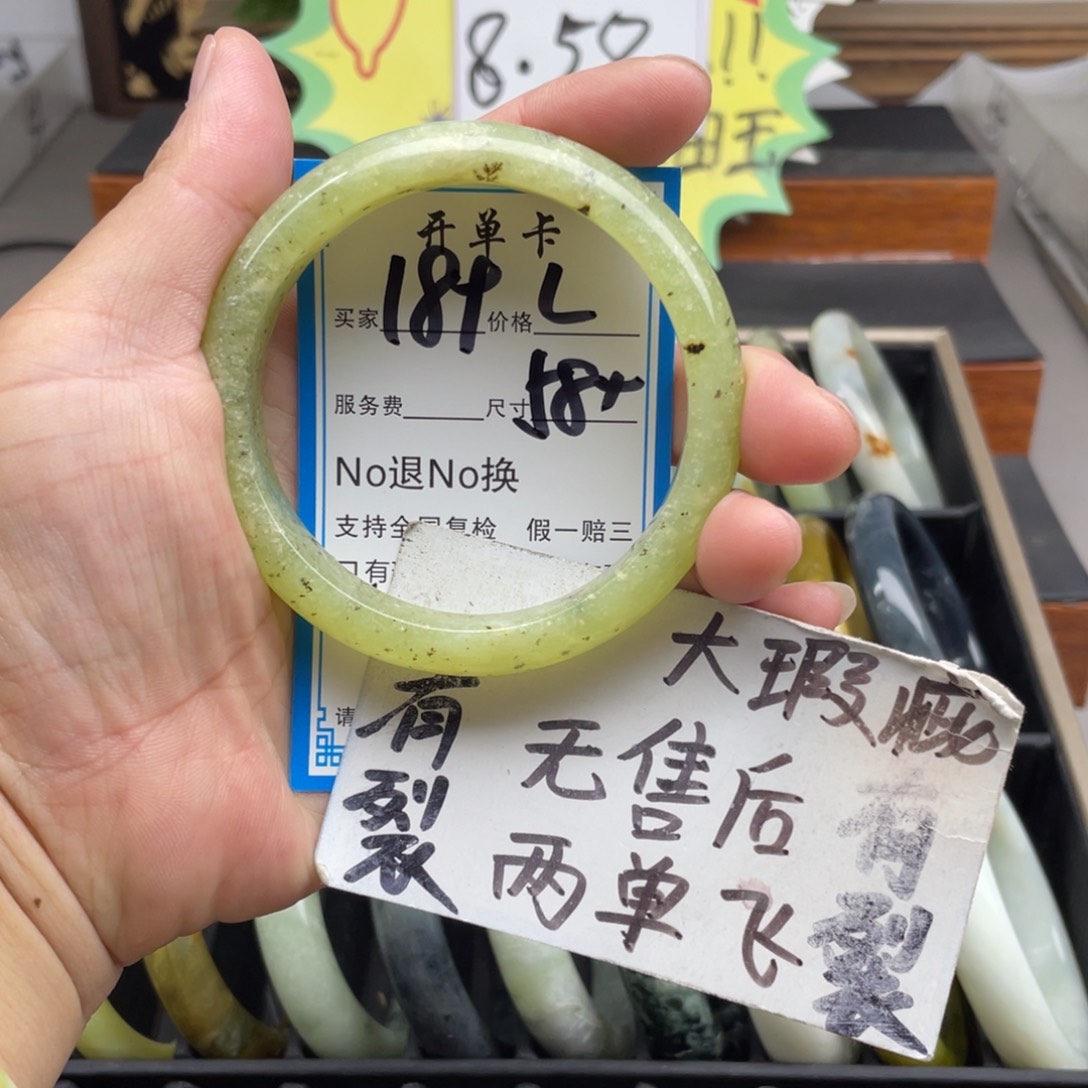 8.50
!!
田王
开单卡
买家 184 价格 L
服务费 尺寸 58+
No退No换
支持全国复检 假一赔三
只有
请
大瑕疵
无售后
两单飞
有裂
有裂